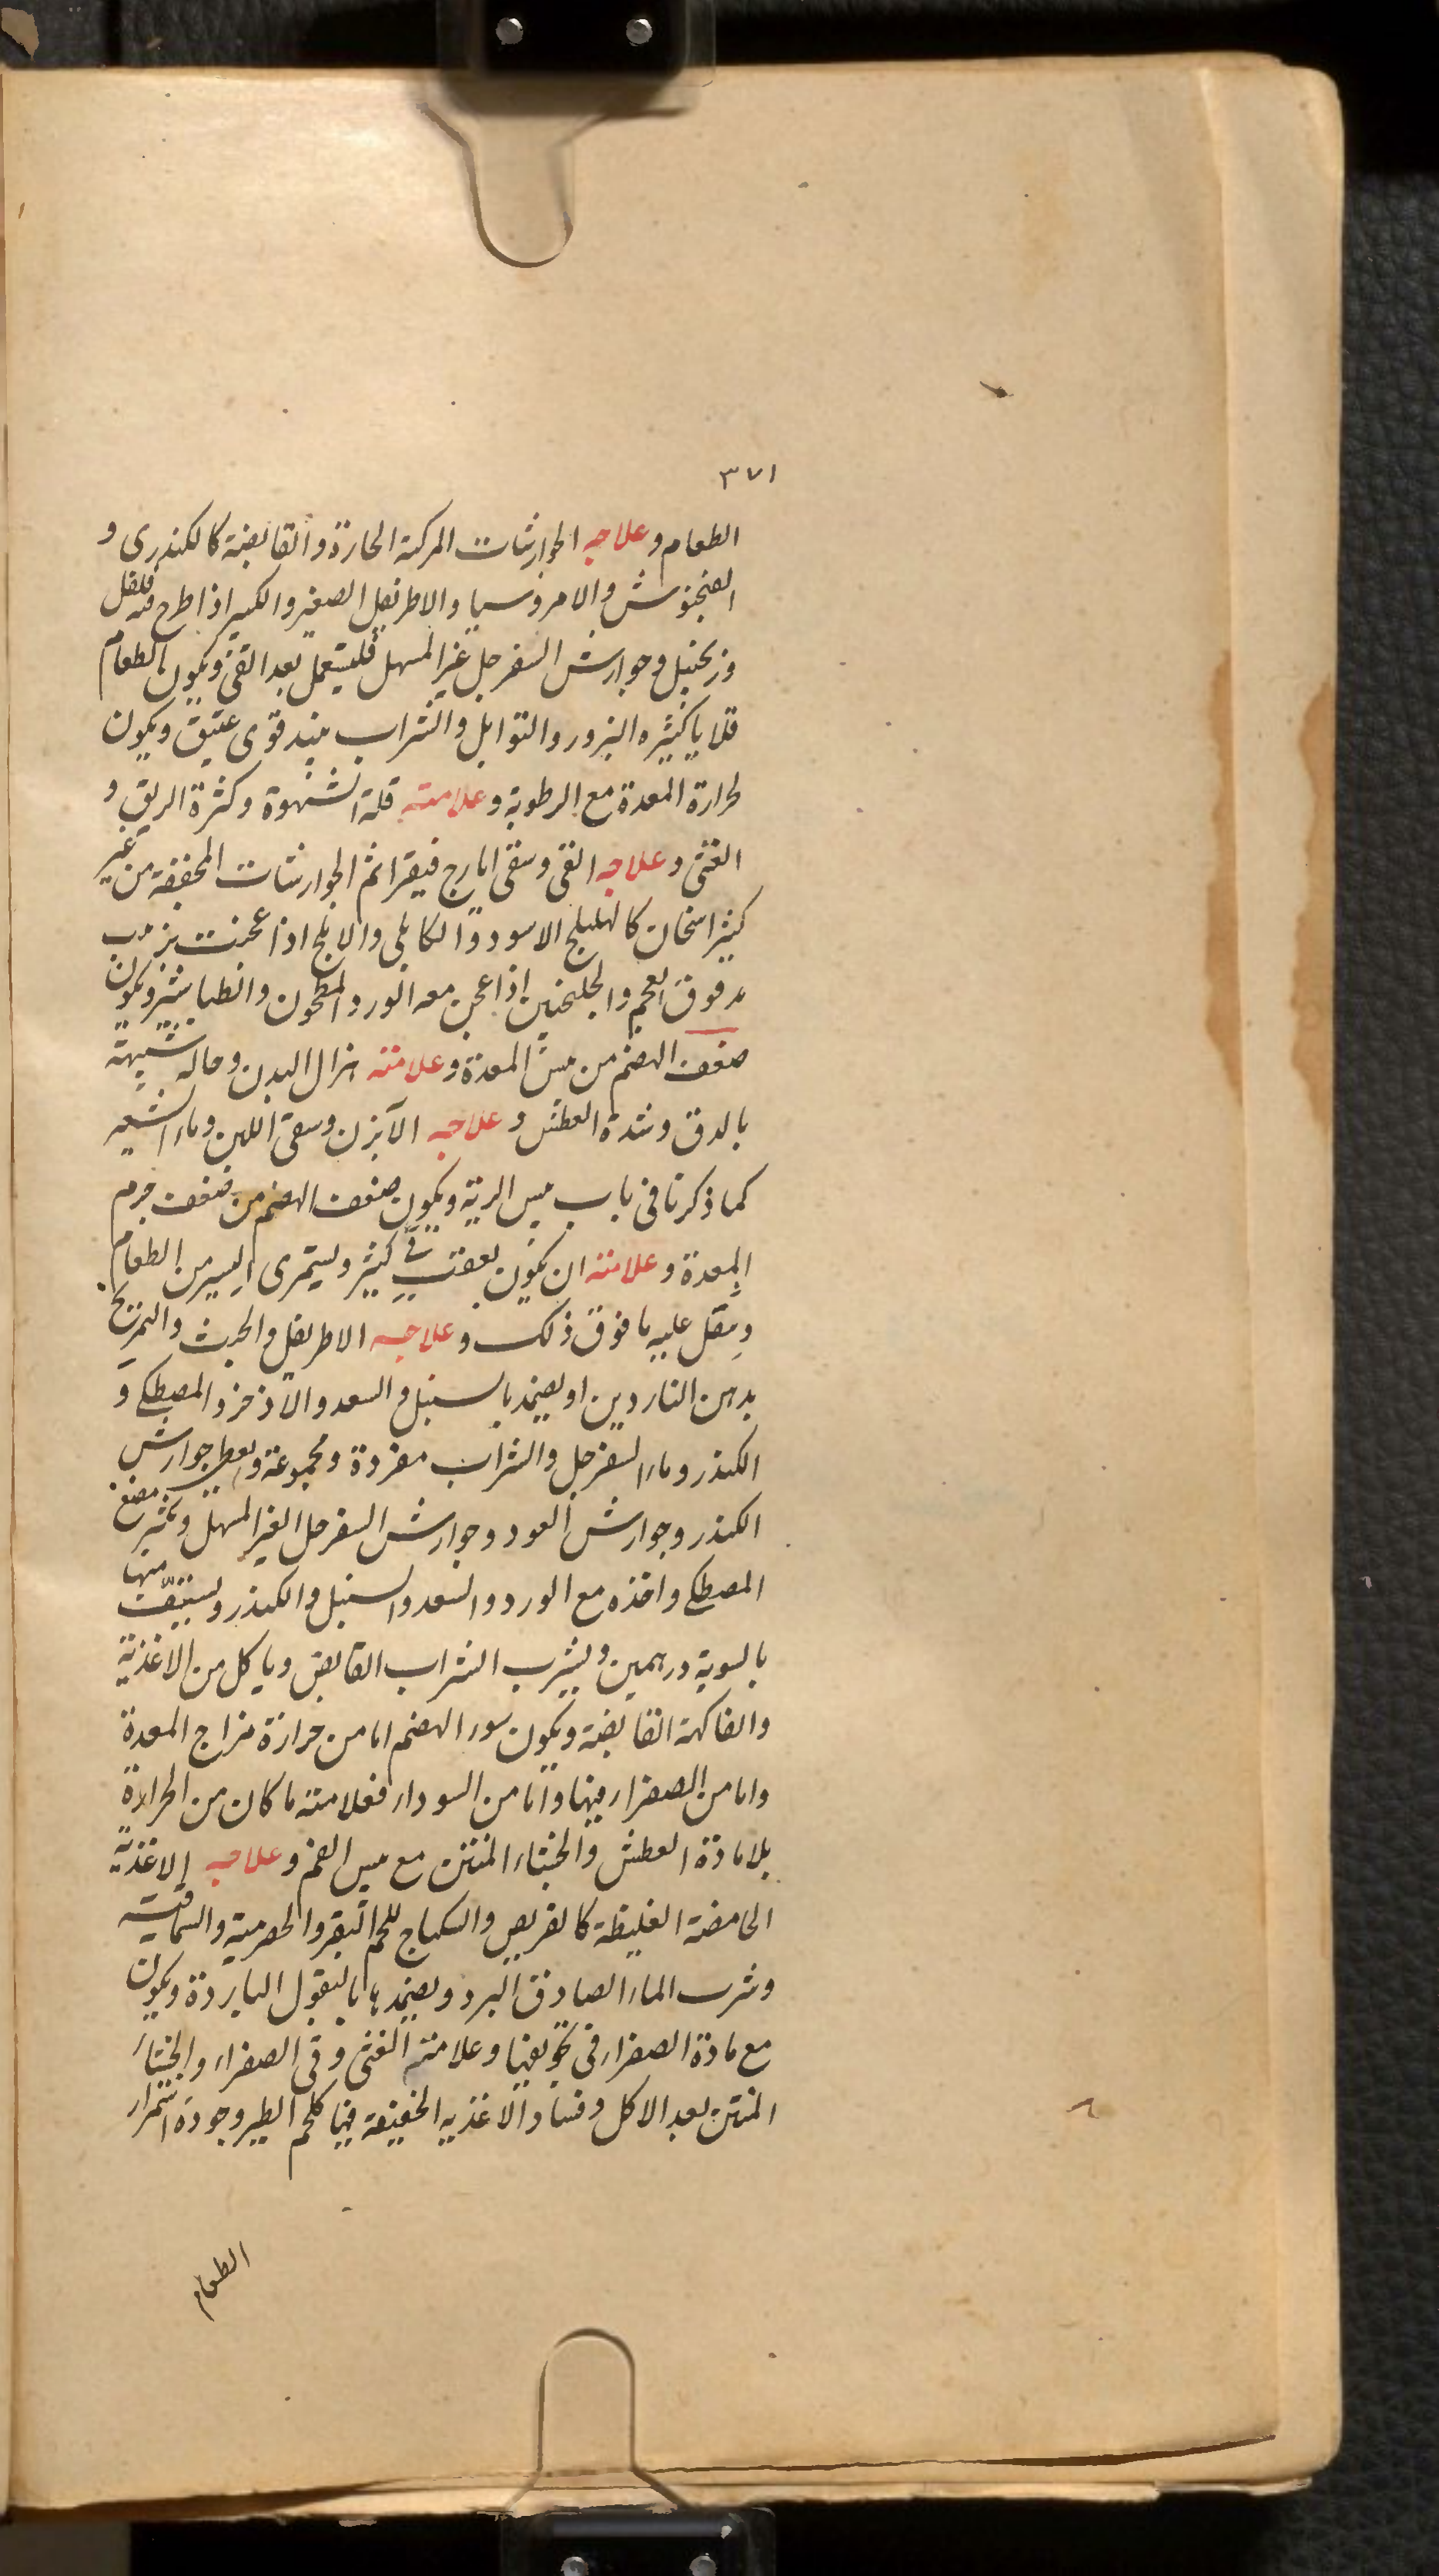 ٣٧١
الطعام و علاجه الجوارشات المركبة الحارة والقابضة كالكندرى و
الفنجنوش والامروسيا والاطريفل الصغير والكبير اذا طرح فيه فلفل
وزنجبيل وجوارش السفرجل غير المسهل فليستعمل بعد القئ ويكون الطعام
قلايا كثيره البزور والتوابل والشراب نبيذ قوى عتيق ويكون
لحرارة المعدة مع الرطوبة و علامته قلة الشهوة وكثرة الريق و
الغثى و علاجه القى وسقى ايارج فيقرا ثم الجوارشات المجففة من غير
كثير اسخان كالهليلج الاسود والكابلى والابلج اذا عجنت بزبيب
مدقوق العجم والجلنجبين اذا عجن معه الورد المطحون والطباشير ويكون
ضعف الهضم من يبس المعدة و علامته هزال البدن وحاله شبيهة
بالدق وشدة العطش و علاجه الآبزن وسقى اللبن وماء الشعير
كما ذكرنا فى باب يبس الرية ويكون ضعف الهضم من ضعف جرم
المعدة و علامته ان يكون بعقب قئ كثير ويستمرى اليسير من الطعام
ويثقل عليه ما فوق ذلك و علاجه الاطريفل والخبث والتمريخ
بدهن الناردين او يضمد بالسنبل والسعد والاذخر والمصطكى و
الكندر وماء السفرجل والشراب مفردة ومجموعة ويعطى جوارش
الكندر وجوارش العود وجوارش السفرجل الغير المسهل ويكثر مضغ
المصطكى واخذه مع الورد والسعد والسنبل والكندر ويستف منها
بالسوية درهمين ويشرب الشراب القابض وياكل من الاغذية
والفاكهة القابضة ويكون سوء الهضم اما من حرارة مزاج المعدة
واما من الصفراء فيها واما من السوداء فعلامته ما كان من الحرارة
بلا مادة العطش والجشاء المنتن مع يبس الفم و علاجه الاغذية
الحامضة الغليظة كالقريص والسكباج للحم البقر والحصرمية والسماقية
وشرب الماء الصادق البرد ويضمدها بالبقول الباردة ويكون
مع مادة الصفراء فى تجويفها وعلامته الغثى وقى الصفراء والجشاء
المنتن بعد الاكل وفساد الاغذيه الخفيفة فيها كلحم الطير وجودة استمراء
الطعام